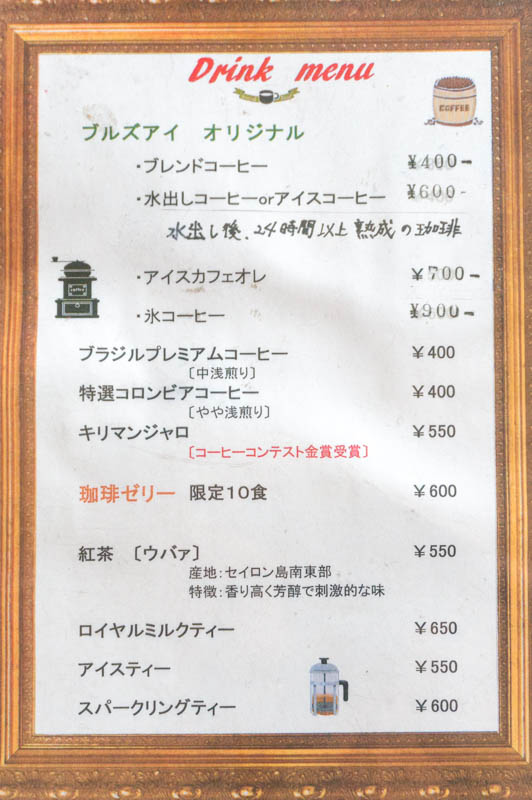 Drink menu
COFFEE
ブルズアイ オリジナル
・ブレンドコーヒー ¥400-
・水出しコーヒーorアイスコーヒー ¥600-
水出し後、24時間以上熟成の珈琲
coffee
・アイスカフェオレ ¥700-
・氷コーヒー ¥900-
ブラジルプレミアムコーヒー ¥400
〔中浅煎り〕
特選コロンビアコーヒー ¥400
〔やや浅煎り〕
キリマンジャロ ¥550
〔コーヒーコンテスト金賞受賞〕
珈琲ゼリー 限定10食 ¥600
紅茶 〔ウバァ〕 ¥550
産地：セイロン島南東部
特徴：香り高く芳醇で刺激的な味
ロイヤルミルクティー ¥650
アイスティー ¥550
スパークリングティー ¥600